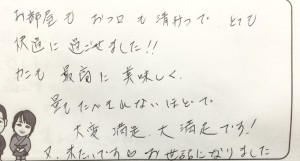 お部屋も お風呂も 清潔で とても
快適に 過ごせました!!
カニも 最高に 美味しく、
量も たべきれないほどで
大変 満足、大 満足です!
又、来たいです♡ お世話になりました